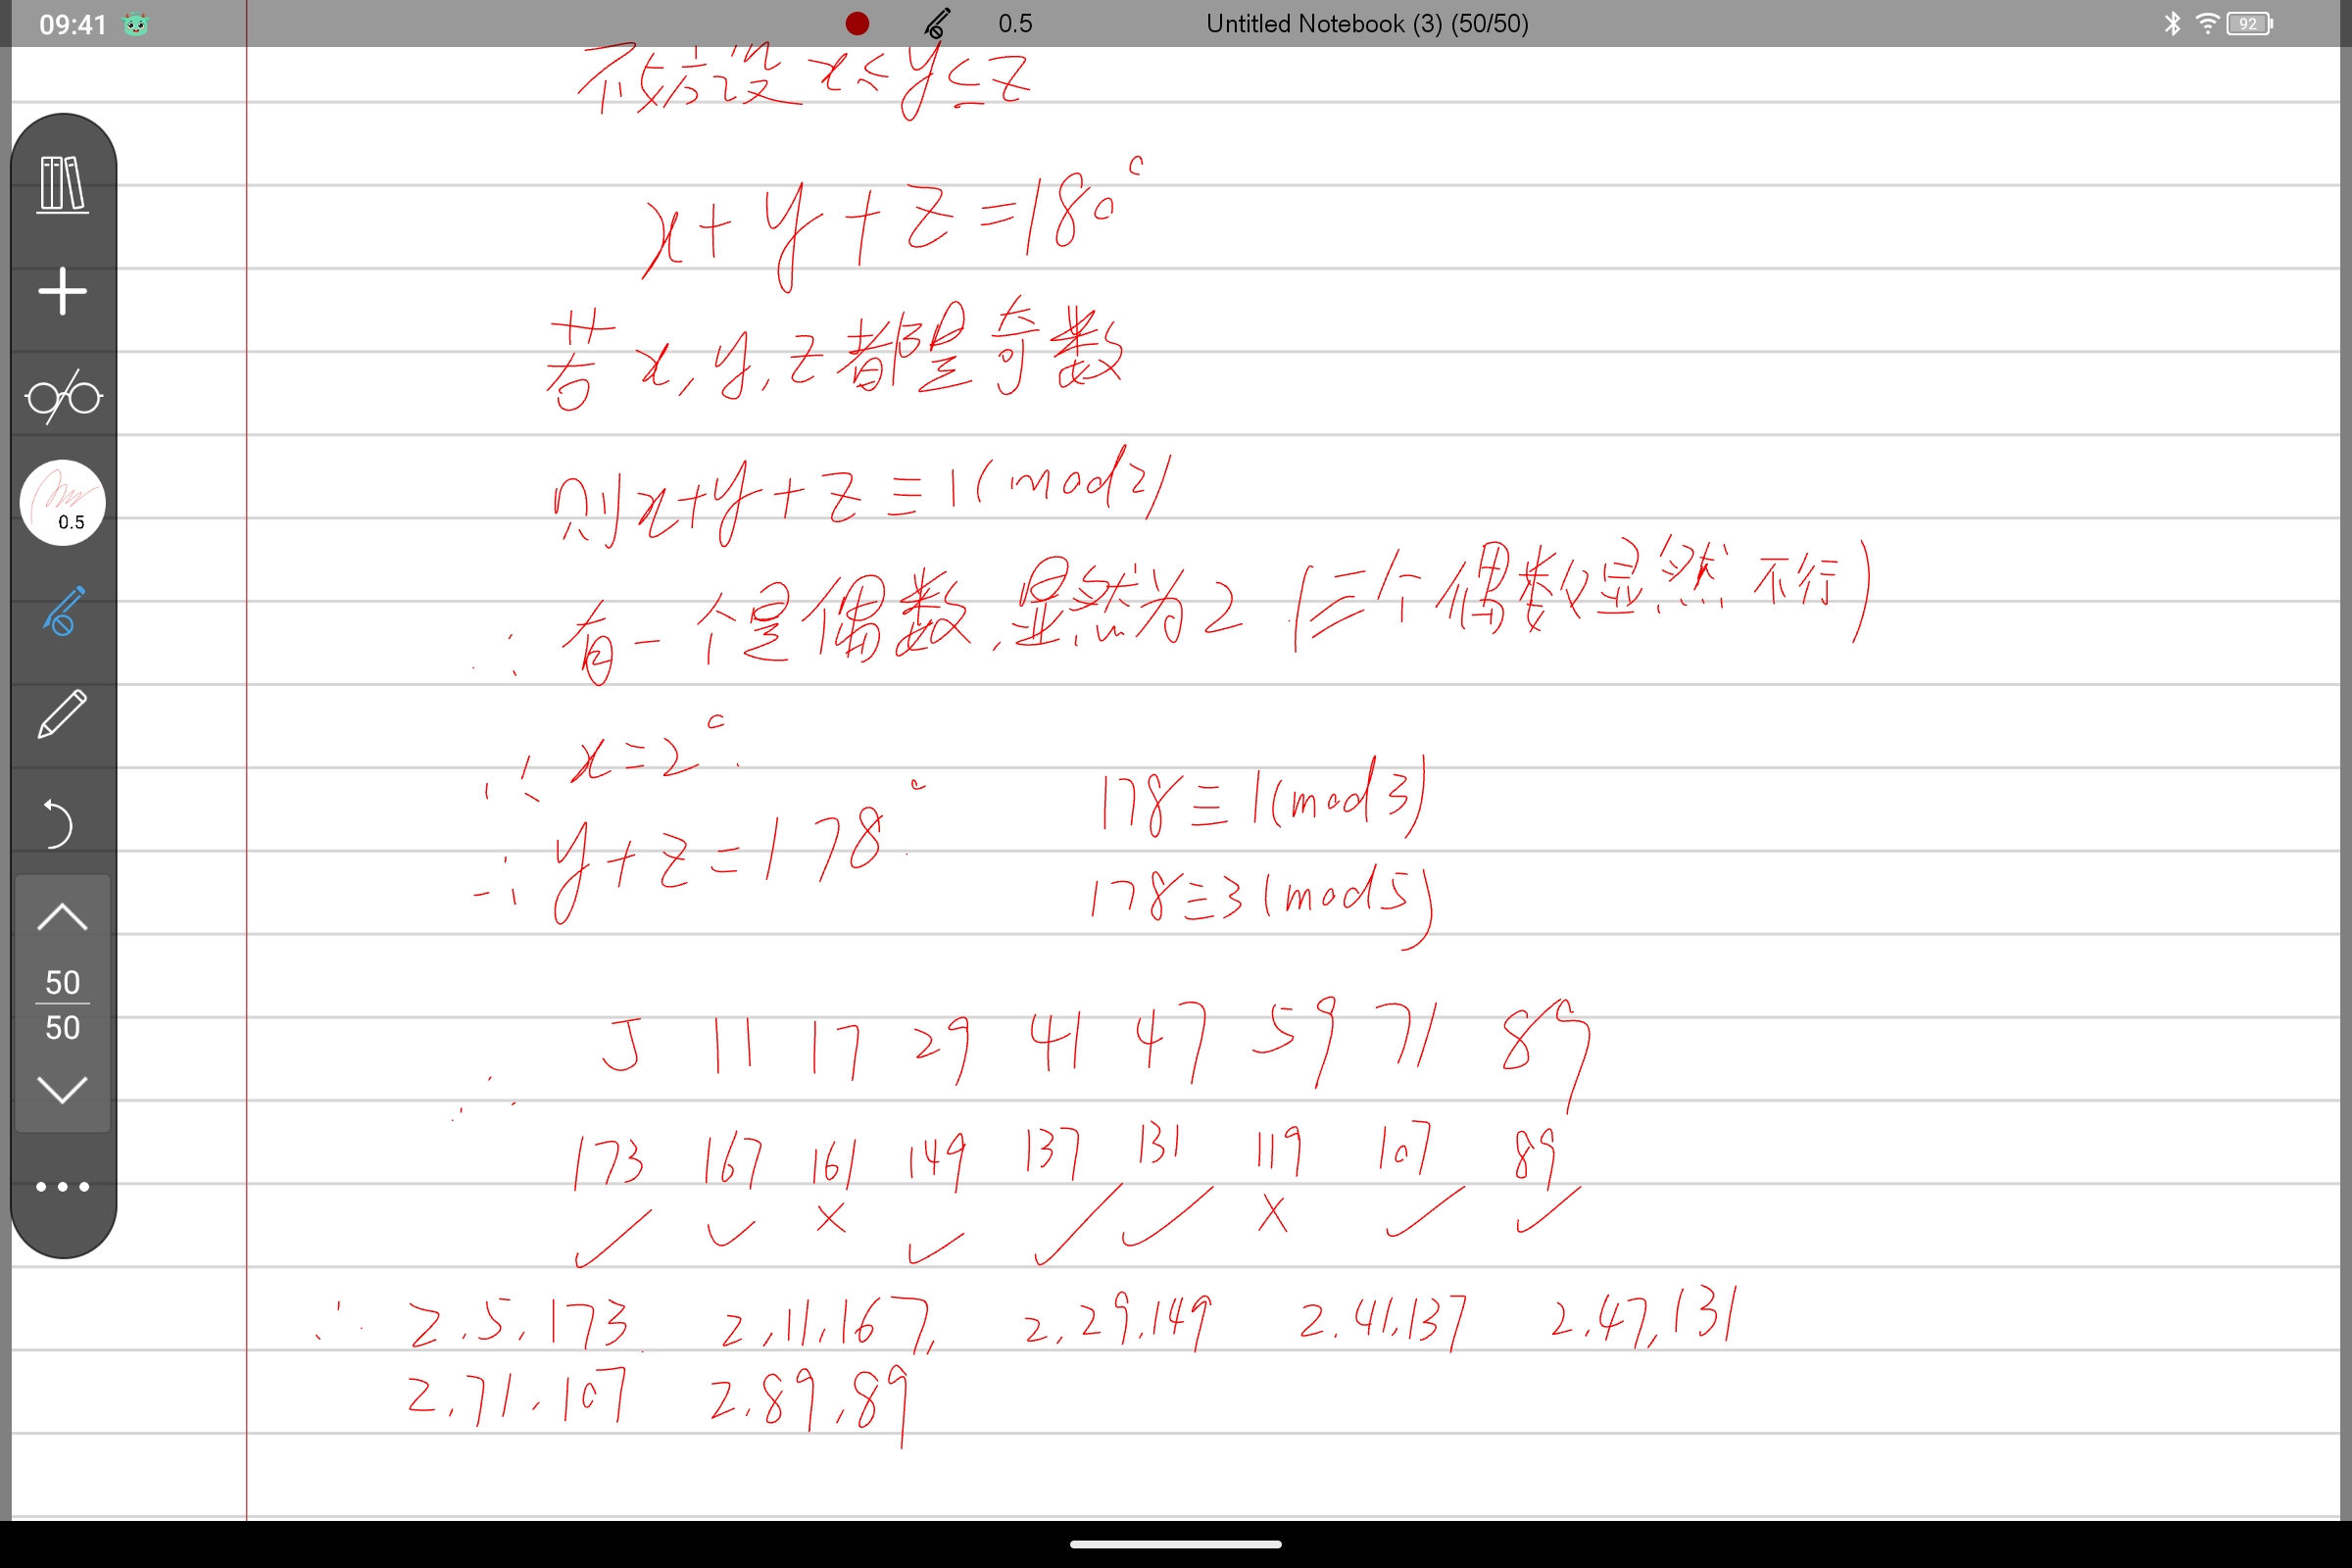 09:41 0.5 Untitled Notebook (3) (50/50) 92
不妨设 x≤y≤z
x+y+z=180°
若x,y,z都是奇数
0.5
则x+y+z≡1(mod2)
∴有一个是偶数,显然为2(三个偶数显然不行)
∵x=2°.
178≡1(mod3)
∴y+z=178°.
178≡3(mod5)
50
50
∴ 5 11 17 29 41 47 59 71 89
173 167 161 149 137 131 119 107 89
✓ ✓ × ✓ ✓ ✓ × ✓ ✓
∴ 2.5.173. 2,11.167, 2,29.149 2.41.137 2.47.131
2.71.107 2.89.89